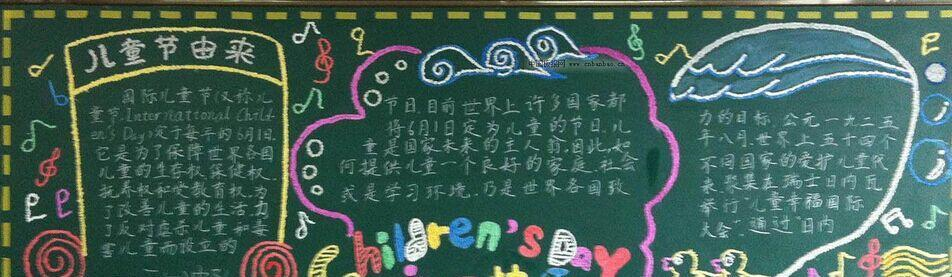 儿童节由来
国际儿童节(又称儿
童节,International Child-
ren's Day)定于每年的6月1日.
它是为了保障世界各国
儿童的生存权.保健权.
抚养权和受教育权.为
了改善儿童的生活.为
了反对虐杀儿童和毒
害儿童而设立的
节日.目前世界上许多国家都
将6月1日定为儿童的节日.儿
童是国家未来的主人翁.因此,如
何提供儿童一个良好的家庭.社会
或是学习环境.乃是世界各国致
www.cnbanbao.cn
力的目标.公元一九二五
年八月.世界上五十四个
不同国家的爱护儿童代
表.聚集在瑞士日内瓦
举行"儿童幸福国际
大会".通过"日内
Children's Day